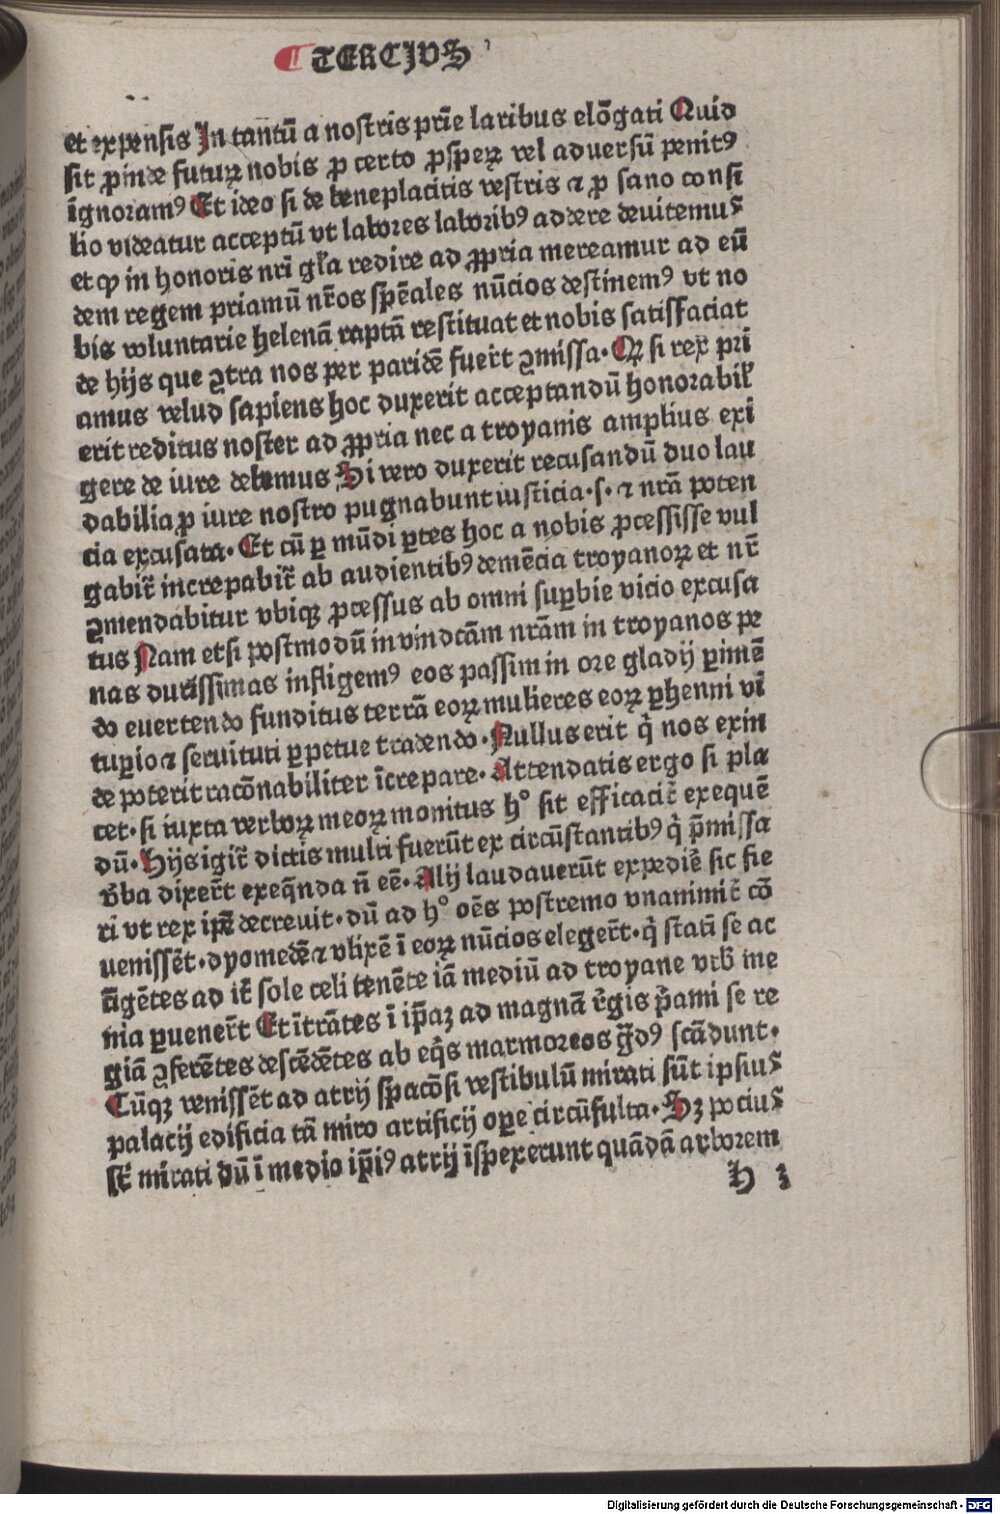 ¶ TERCIVS
et expensis In tantū a nostris pr̄ie laribus elōgati Quid
sit ꝓinde futuꝝ nobis ꝓ certo ꝓspeꝝ vel aduersū penitꝰ
īgnoramꝰ Et ideo si de beneplacitis vestris ⁊ ꝓ sano consi
lio videatur acceptū vt labores laboribꝰ addere deuitemus
et ꝙ in honoris nrī gl̄a redire ad ꝓpria mereamur ad eū
dem regem priamū nr̄os sp̄eales nūcios destinemꝰ vt no
bis voluntarie helenā raptā restituat et nobis satisfaciat
de hijs que ꝯtra nos per paridē fuer̄t ꝯmissa. Qꝛ si rex pri
amus velud sapiens hoc duxerit acceptandū honorabil̄
erit reditus noster ad ꝓpria nec a troyanis amplius exi
gere de iure debemus Si vero duxerit recusandū duo lau
dabilia ꝓ iure nostro pugnabunt iusticia. s. ⁊ nrā poten
cia excusata. Et cū ꝑ mūdi ꝑtes hoc a nobis ꝓcessisse vul
gabit̄ increpabit̄ ab audientibꝰ demēcia troyanoꝝ et nr̄
ꝯmendabitur vbiqꝫ ꝓcessus ab omni suꝑbie vicio excusa
tus Nam etsi postmodū in vindcām nrām in troyanos pe
nas durissimas infligemꝰ eos passim in ore gladij ꝑimē
do euertendo funditus terrā eoꝝ mulieres eoꝝ ꝑhenni vi
tuꝑio ⁊ seruituti ꝑpetue tradendo. Nullus erit q̇ nos exin
de poterit racōnabiliter īcrepare. Attendatis ergo si pla
cet. si iuxta verboꝝ meoꝝ monitus h° sit efficacit̄ exequē
dū. Hijs igit̄ dictis multi fuerūt ex circūstantibꝰ q̇ p̄missa
v̄ba dixer̄t exeq̄nda n̄ eē. Alij laudauerūt expediē sic fie
ri vt rex ip̄e decreuit. dū ad h° oēs postremo vnanimit̄ cō
uenissēt. dyomedē ⁊ vlixē ī eoꝝ nūcios eleger̄t. q̇ statī se ac
cīgētes ad it̄ sole celi tenēte iā mediū ad troyane vrb̄ me
nia ꝑuener̄t Et ītrātes ī ip̄aꝫ ad magnā r̄gis p̄ami se re
giā ꝯferētes descēdētes ab eq̇s marmoreos g̈dꝰ scādunt.
Cūqꝫ venissēt ad atrij spacōsi vestibulū mirati sūt ipsius
palacij edificia tā miro artificij oꝑe circūfulta. Sꝫ pocius
st̄ mirati dū ī medio ip̄iꝰ atrij īspexerunt quādā arborem
h ꝫ
Digitalisierung gefördert durch die Deutsche Forschungsgemeinschaft - DFG